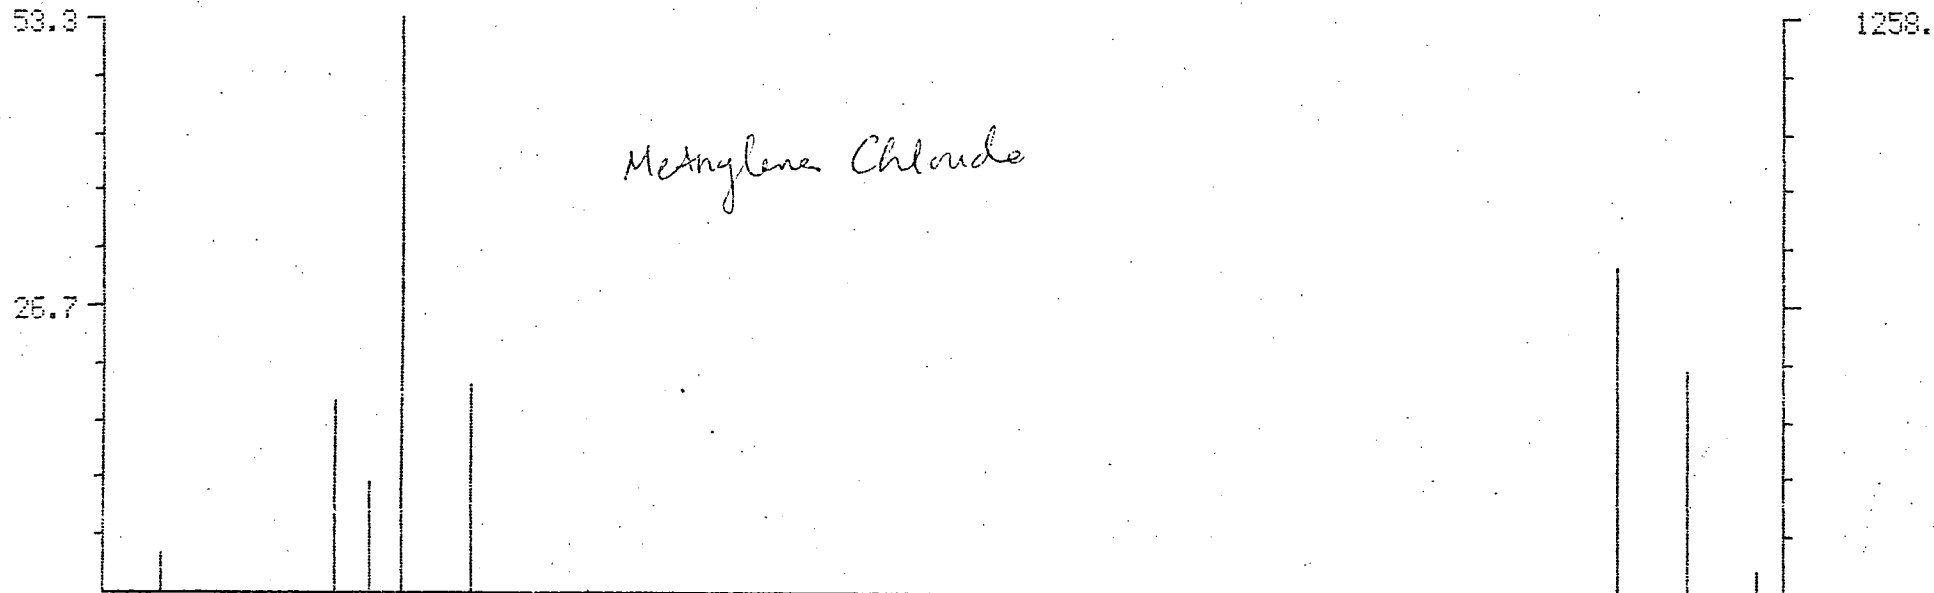 53.3
1258.
Methylene Chloride
26.7